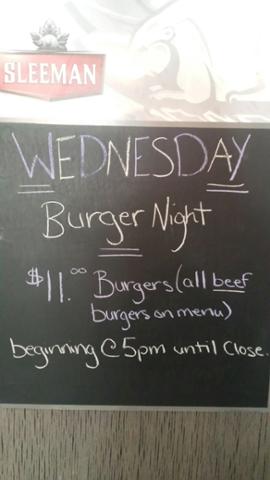 SLEEMAN
WEDNESDAY
Burger Night
$11.00 Burgers (all beef
burgers on menu)
beginning @ 5pm until Close.